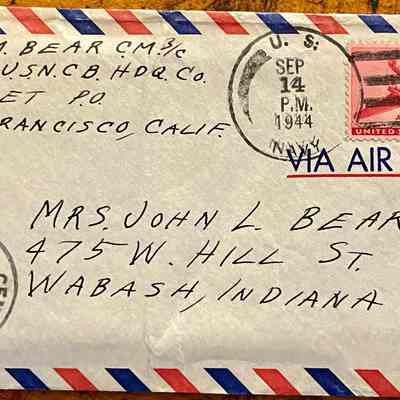 M. BEAR C.M. 3/C
U.S.N.C.B. HDQ. CO.
ET P.O.
FRANCISCO, CALIF.
U. S.
SEP
14
P.M.
1944
NAVY
UNITED S
VIA AIR
MRS. JOHN L. BEAR
475 W. HILL ST.
WABASH, INDIANA